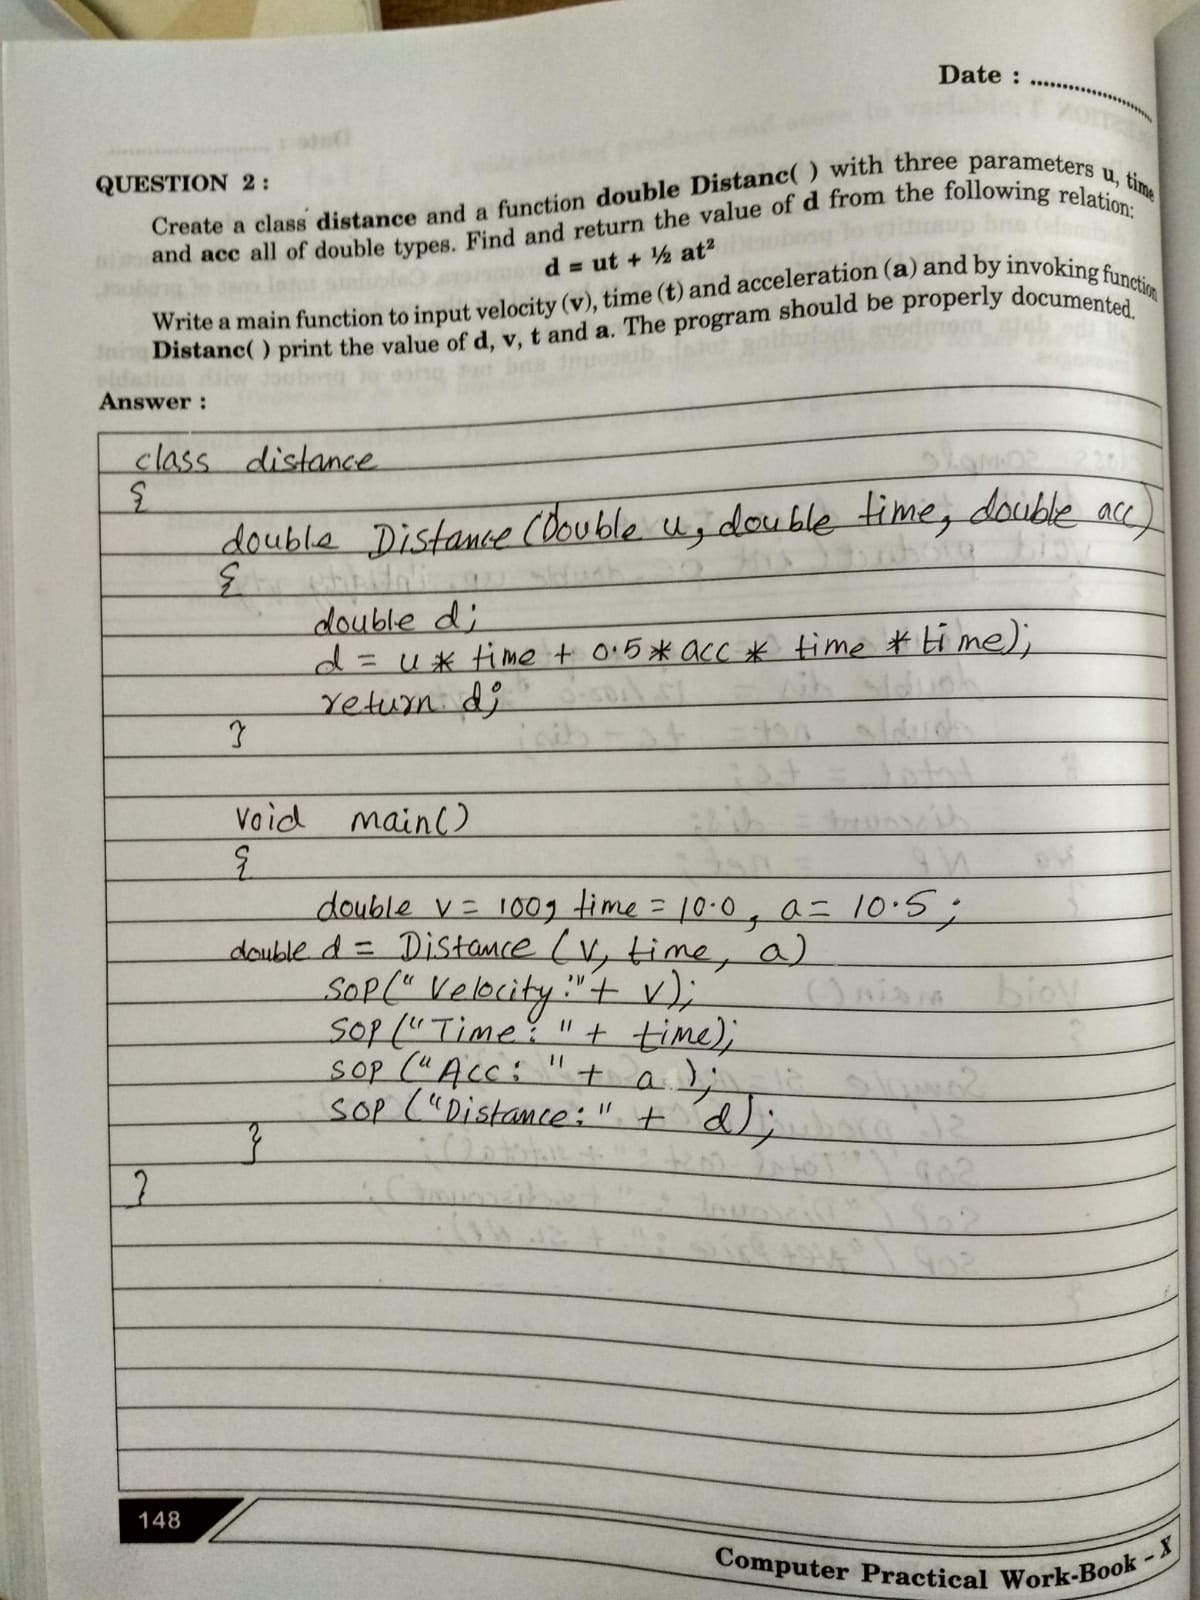 Date : ........................
QUESTION 2 :
Create a class distance and a function double Distanc( ) with three parameters u, time
and acc all of double types. Find and return the value of d from the following relation:
d = ut + ½ at²
Write a main function to input velocity (v), time (t) and acceleration (a) and by invoking function
Distanc( ) print the value of d, v, t and a. The program should be properly documented.
Answer :
class distance
{
double Distance (Double u, double time, double acc)
{
double d;
d = u * time + 0.5 * acc * time * time);
return d;
}
void main()
{
double v = 100, time = 10.0, a = 10.5;
double d = Distance (v, time, a)
SOP(" Velocity:"+ v);
SOP ("Time: " + time);
SOP ("Acc: " + a );
SOP ("Distance:" + d);
}
}
148
Computer Practical Work-Book - X